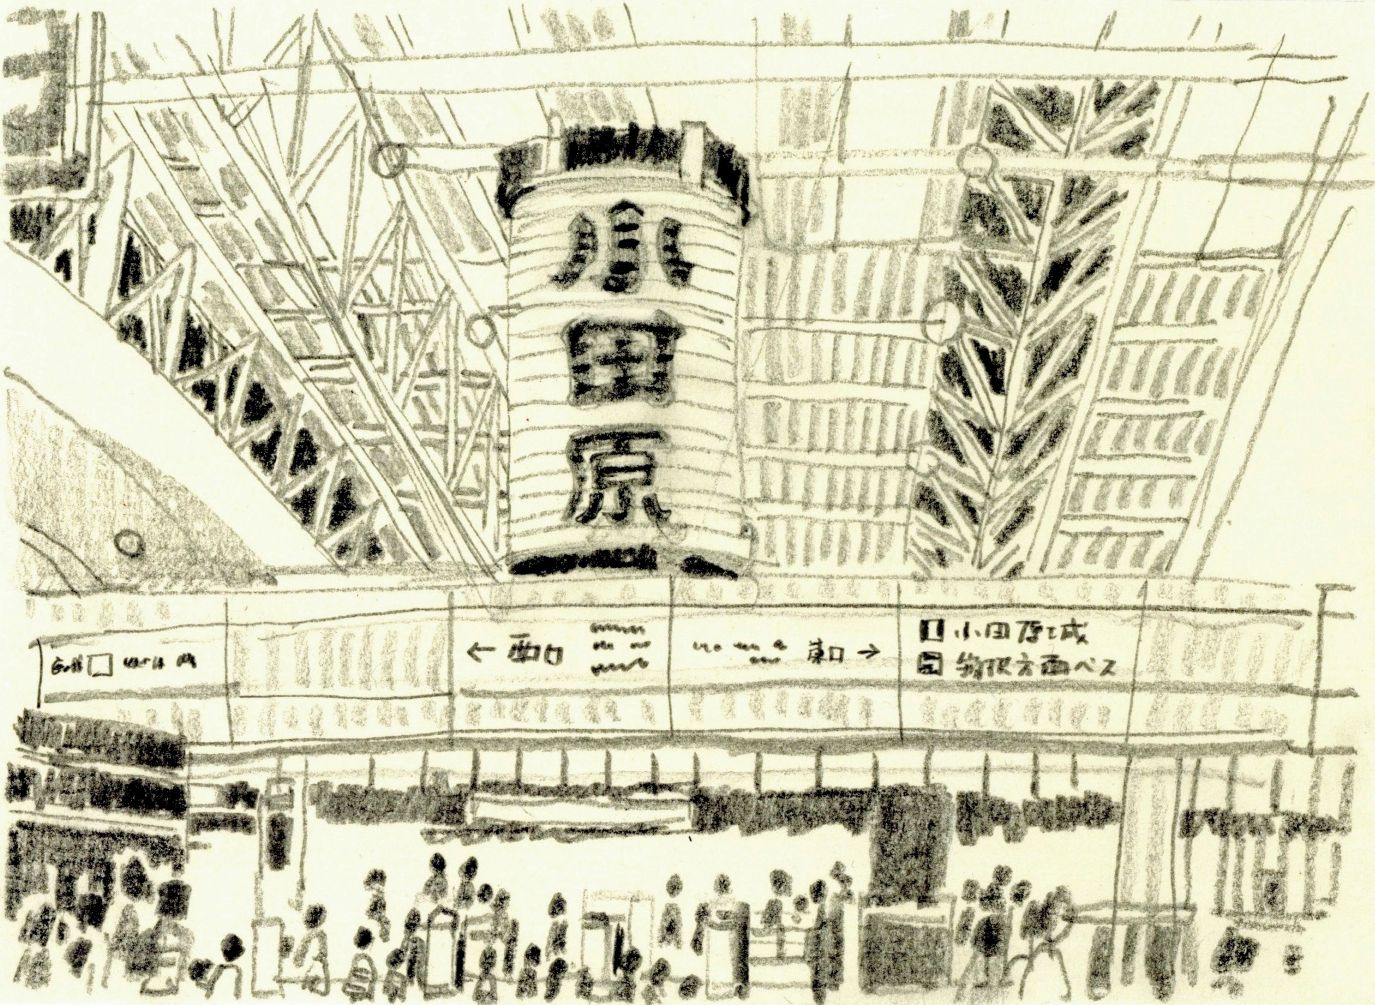 小
田
原
← 西口
東口 →
小田原城
箱根方面バス